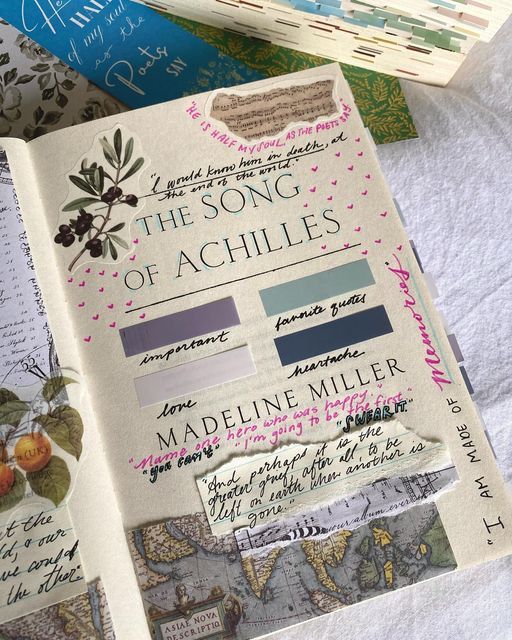 HALF
of my soul
as the
Poets
SAY
"HE IS HALF MY SOUL, AS THE POETS SAY"
"I would know him in death, at
the end of the world."
THE SONG
OF ACHILLES
important
favorite quotes
love
heartache
MADELINE MILLER
"Name one hero who was happy."
"you can't" "I'm going to be the first."
"SWEAR IT."
"And perhaps it is the
greater grief, after all, to be
left on earth when another is
gone."
your album
ASIAE NOVA
DESCRIPTIO
"I AM MADE OF Memories."
the other"